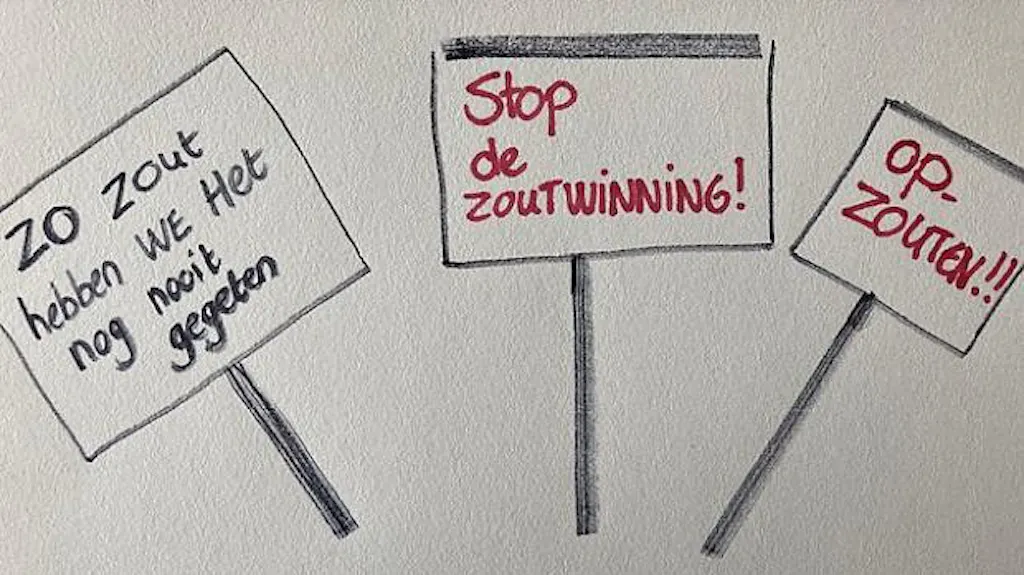 ZO ZOUT
hebben WE Het
nog nooit
gegeten
Stop
de
ZOUTWINNING!
OP-
ZOUTEN.!!